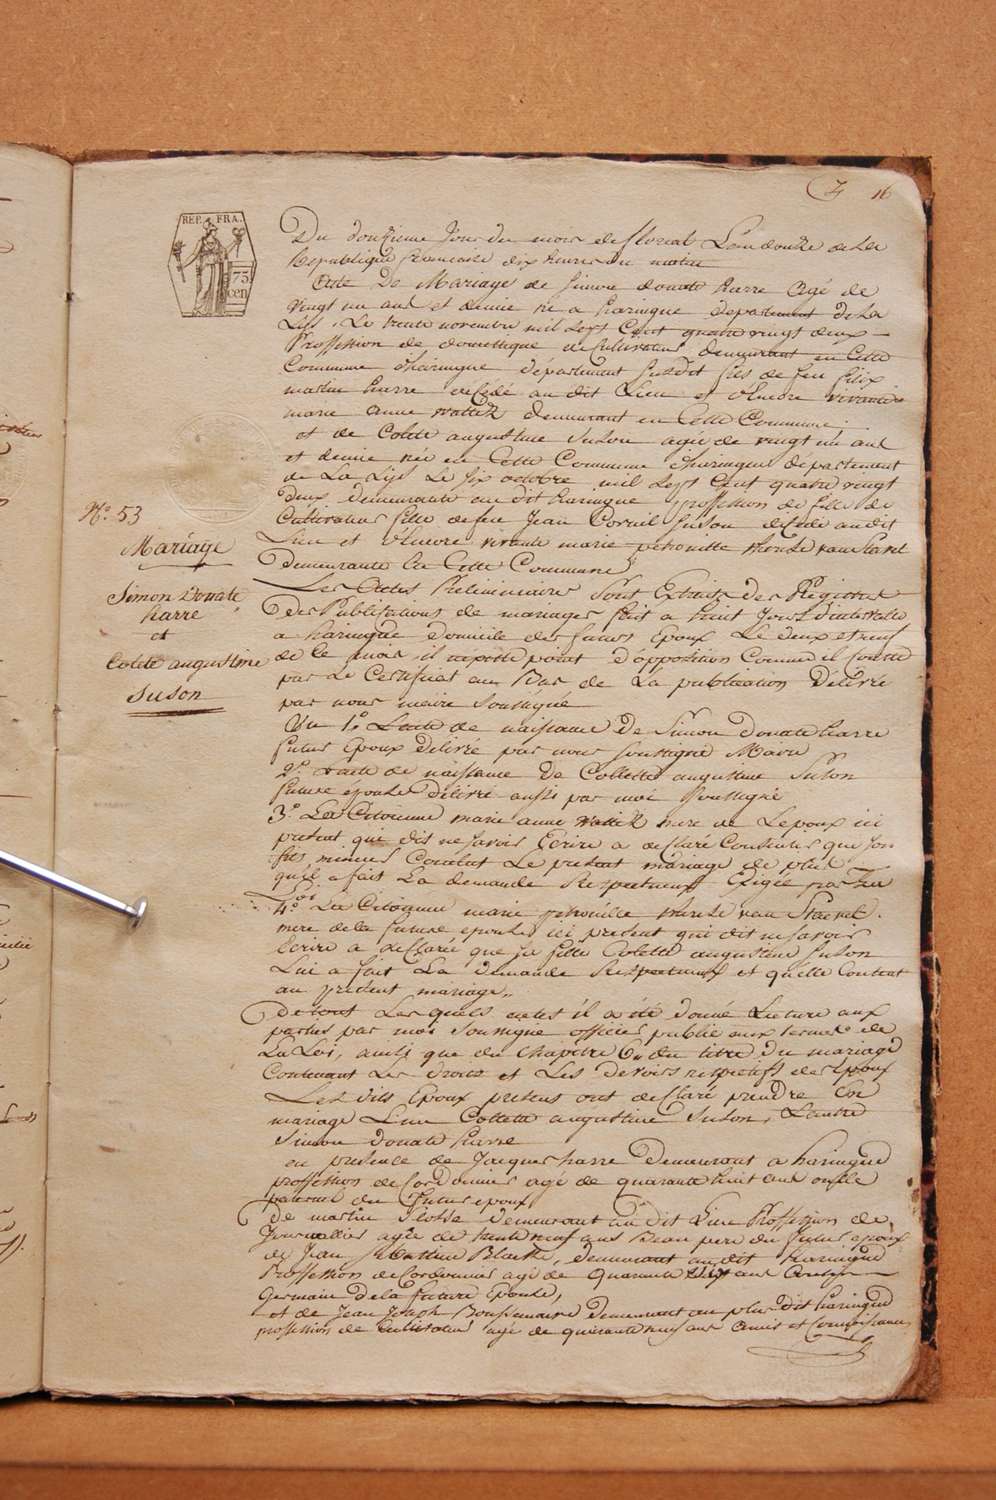 16
REP. FRA.
75
cen
Du douzieme Jour du mois de floreal L'an douze de La
Republique francaise dix heures du matin
Acte De Mariage de Simon donate harre Agé de
vingt un ans et demie né a haringue departement de La
Lis, Le trente novembre mil sept Cent quatre vingt deux
Proffession de domestique de Cultivateur demeurant en Cette
Commune d'haringue département susdit fils de feu felix
martin harre decedé au dit Lieu et d'Encore vivante
marie anne demeurant en Cette Commune;
et de Colete augustine Suson agée de vingt un ans
et demie née en Cette Commune d'haringue département
de La Lys Le Six octobre mil sept Cent quatre vingt
deux demeurante au dit haringue proffession de fille de
Cultivateur fille de feu Jean Corneil Suson decedé audit
Lieu et d'Encore vivante marie petronille
demeurante En Cette Commune
N.o 53
Mariage
Simon Donate
harre
et
Colete augustine
Suson
Les Actes Preliminaires Sont Extraits des Registres
des Publications de mariages fait a huit Jours d'intervalle
a haringue domicile des futurs Epoux Le deux et neuf
de Ce mois, il point d'opposition Comme il Conste
par Le Certificat au Bas de La publication Délivré
par nous maire soussigné
Vu 1.o L'acte de naissance De Simon Donate harre
futur Epoux Délivré par nous soussigné Maire
2.o L'acte de naissance De Collette augustine Suson
future épouse Délivré aussi par moi soussigné
3.o La Citoienne marie anne mere de L'epoux ici
present qui dit ne savoir Ecrire a declaré que son
fils mineur Contract Le present mariage de plus
qu'il a fait La demande Respectueuse Exigée par La
Loi
4.o La Citoienne marie petronille
mere de la future epouse ici present qui dit ne savoir
Ecrire a declaré que sa fille Colette augustine Suson
Lui a fait La demande Respectueuse et qu'elle Content
au present mariage,,
De tout Les quels actes il a été donné Lecture aux
parties par moi soussigné officier public aux termes de
La Loi, ainsi que du Chapitre 6,, du titre du mariage
Contenant Les droits et Les Devoirs respectifs des Epoux
Les dits Epoux presens ont declaré prendre En
mariage L'un Collette augustine Suson, L'autre
Simon Donate harre
en presence de Jacques harre Demeurant a haringue
proffession de Cordonnier agé de quarante huit ans oncle
paternel du futur epoux,
De martin Demeurant au dit Lieu Proffession de
Journallier agé de trente neuf ans Beau pere du futur epoux
de Jean demeurant au dit haringue
Proffession de Cordonnier agé de quarante ans Cousin
Germain de la future Epouse,
et de Jean Joseph Demeurant au plus dit haringue
proffession de Cultivateur agé de quarante neuf ans Amis et Connoissance